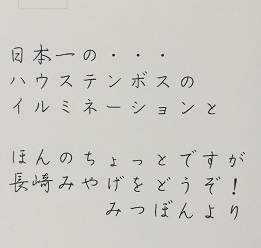 日本一の・・・
ハウステンボスの
イルミネーションと
ほんのちょっとですが
長崎みやげをどうぞ！
みつぼんより